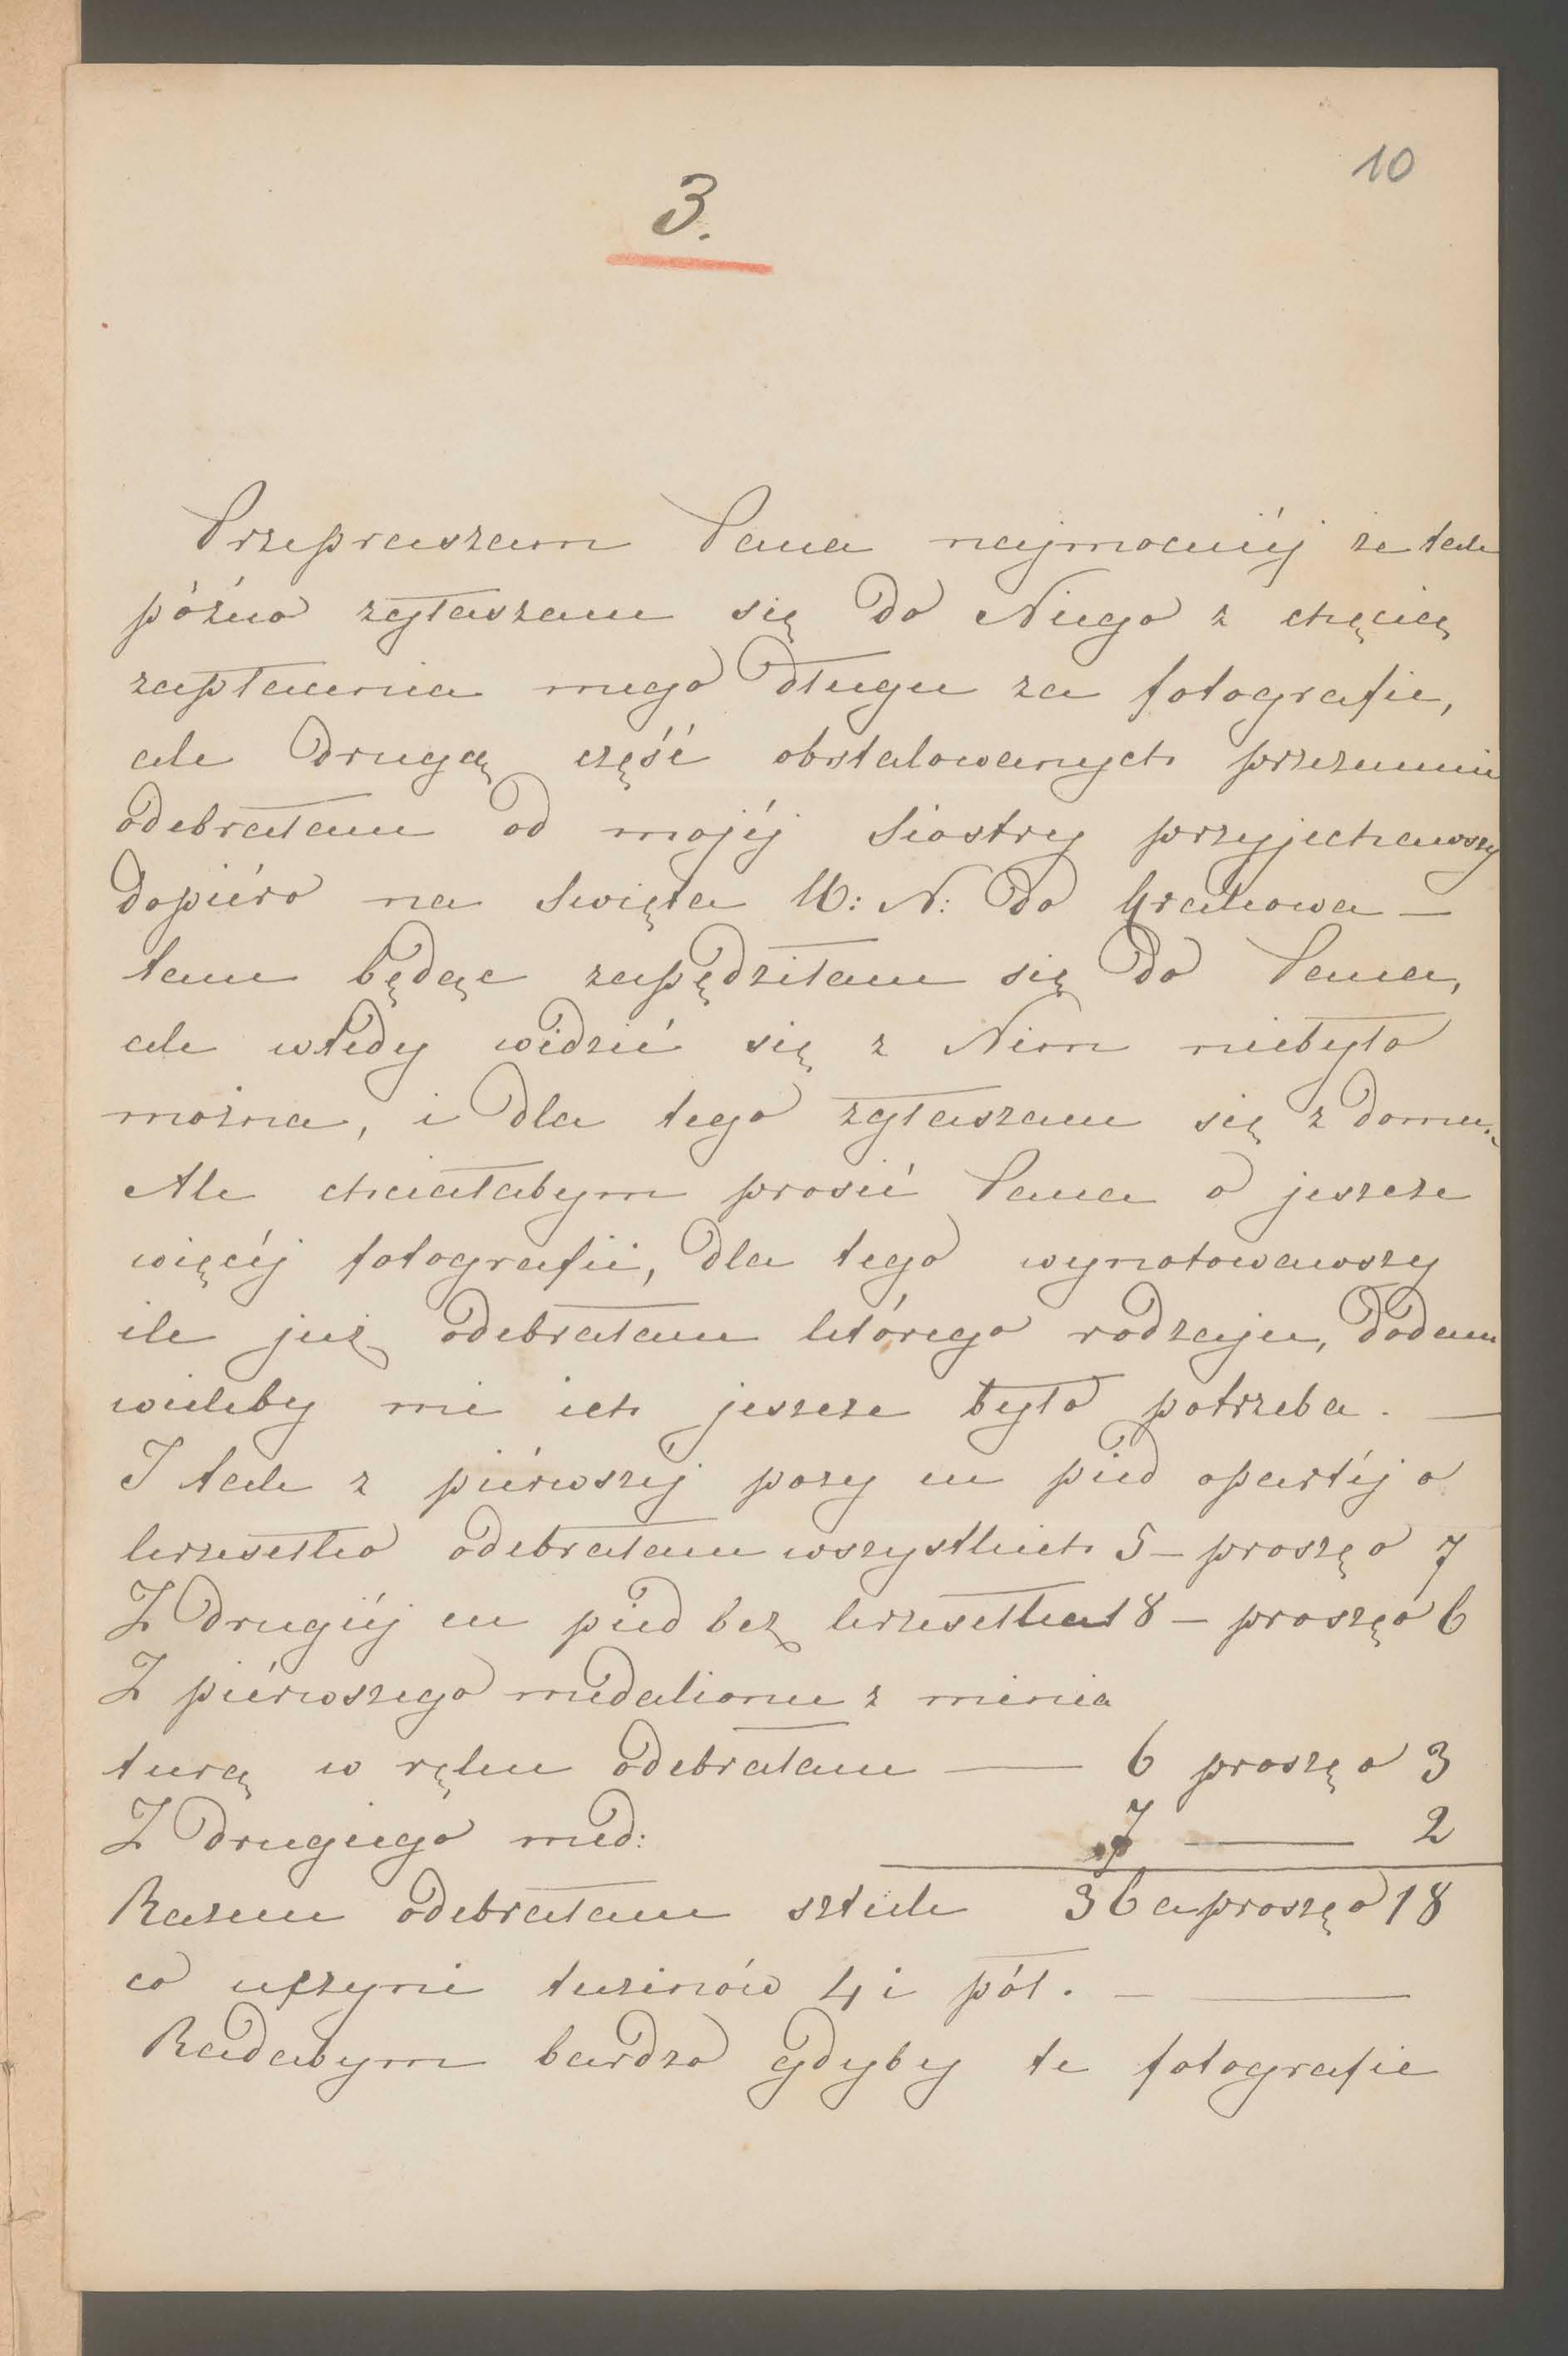 10
3.
Przepraszam Pana najmocniéj że tak
późno zgłaszam się do Niego z chęcią
zapłacenia mego długu za fotografie,
ale drugą część obstalowanych przezemnie
odebrałam od mojéj Siostry przyjechawszy
dopiéro na Święta W: N: do Krakowa —
tam będąc zapędziłam się do Pana,
ale wtedy widzić się z Nim niebyło
można, i dla tego zgłaszam się z domu.
Ale chciałabym prosić Pana o jeszcze
więcéj fotografii, dla tego wynotowawszy
ile już odebrałam którego rodzaju, dodam
wieleby mi ich jeszcze było potrzeba. —
I tak z piérwszéj pozy en pied opartéj o
krzesełko odebrałam wszystkich 5 — proszę o 7
Z drugiéj en pied bez krzesełka 18 — proszę o 6
Z piérwszego medalionu z minia
turą w ręku odebrałam — 6 proszę o 3
Z drugiego med: 7 — 2
Razem odebrałam sztuk 36 a proszę o 18
co uczyni tuzinów 4 i pół. — —
Radabym bardzo gdyby te fotografie